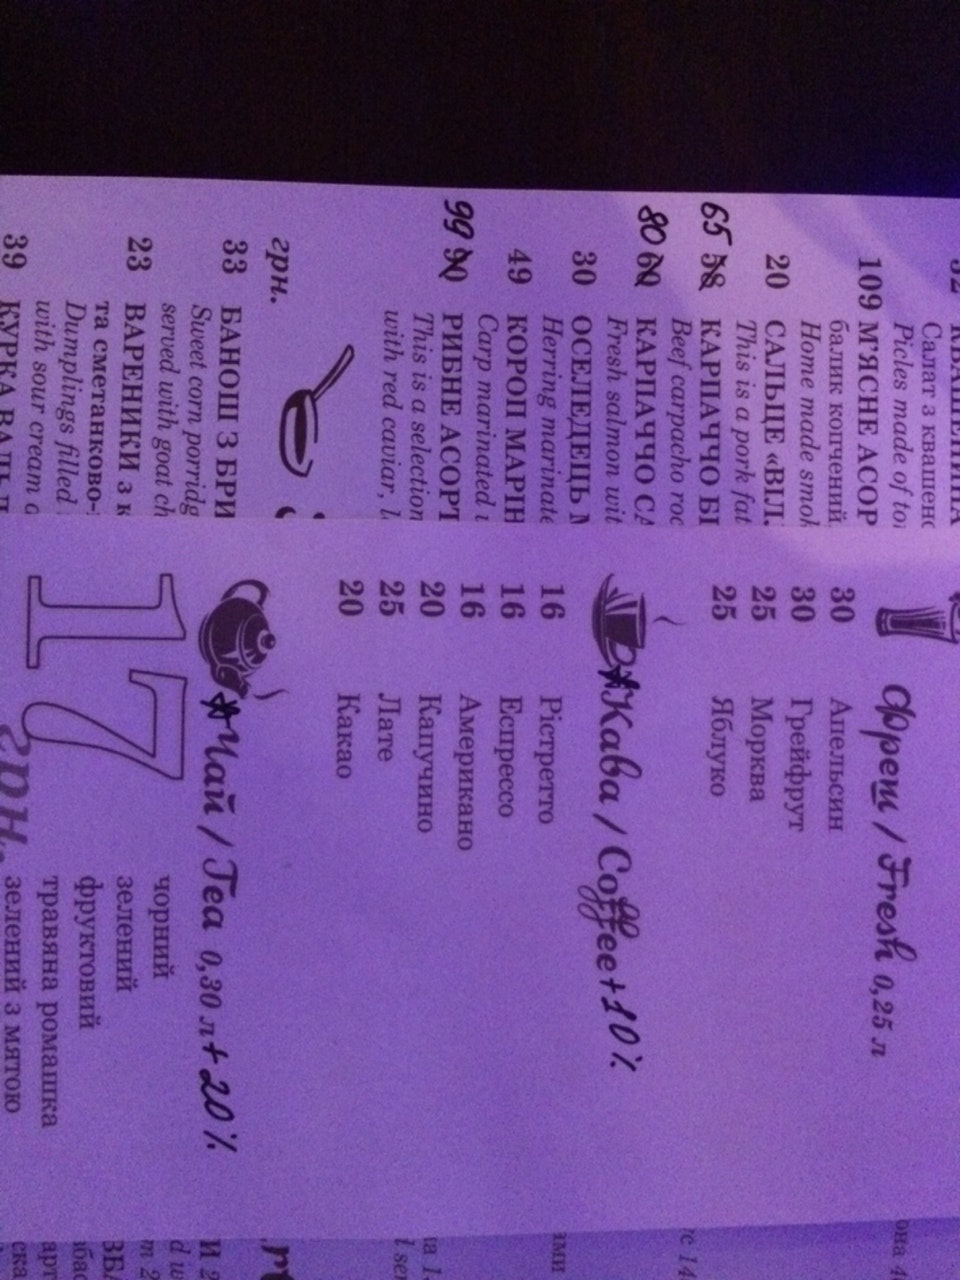 109 М'ЯСНЕ АСОР
балик копчений
Home made smok
20 САЛЬЦЕ
This is a pork fat
65 58 КАРПАЧЧО
Beef carpacho
80 60 КАРПАЧЧО
Fresh salmon
30 ОСЕЛЕДЕЦЬ
Herring marinate
49 КОРОП МАРИН
Carp marinated
99 90 РИБНЕ АСОРТ
This is a selection
with red caviar,
грн.
33 БАНОШ З БРИ
Sweet corn porridg
served with goat ch
23 ВАРЕНИКИ з
та сметанково-
Dumplings filled
with sour cream
39 КУРКА
Фреш / Fresh 0,25 л
30 Апельсин
30 Грейфрут
25 Морква
25 Яблуко
*Кава / Coffee+10%
16 Рістретто
16 Еспрессо
16 Американо
20 Капучино
25 Лате
20 Какао
*Чай / Tea 0,30 л+20%
17 грн.
чорний
зелений
фруктовий
травяна ромашка
зелений з мятою